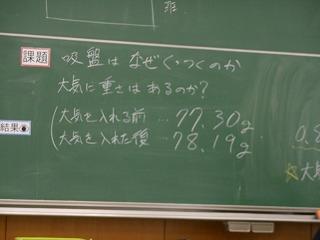 班
課題
吸盤は なぜくっつくのか
大気に重さは あるのか?
結果
大気を入れる前 … 77.30g
大気を入れた後 … 78.19g
0.8
☆大気